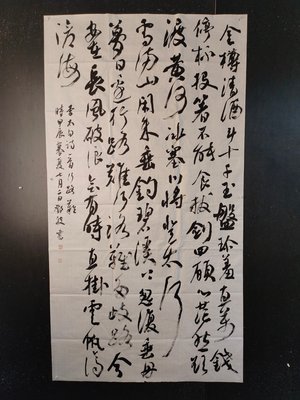 金樽清酒斗十千玉盤珍羞直萬錢
停杯投箸不能食拔劍四顧心茫然欲
渡黃河冰塞川將登太行
雪滿山閑來垂釣碧溪上忽復乘舟
夢日邊行路難行路難多歧路今
安在長風破浪會有時直掛雲帆濟
滄海
李太白詩行路難
時甲辰夏七月書